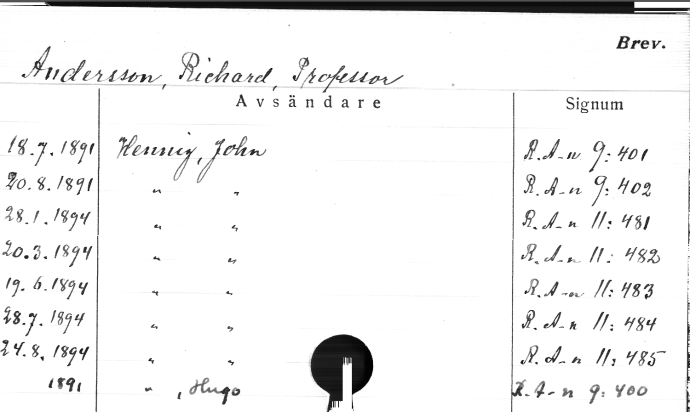 Brev.
Andersson, Richard, Professor
Avsändare Signum
18.7.1891 Hennig, John R.A-n 9:401
20.8.1891 " " R.A-n 9:402
28.1.1894 " " R.A-n 11:481
20.3.1894 " " R.A-n 11:482
19.6.1894 " " R.A-n 11:483
28.7.1894 " " R.A-n 11:484
24.8.1894 " " R.A-n 11:485
1891 " , Hugo R.A-n 9:400